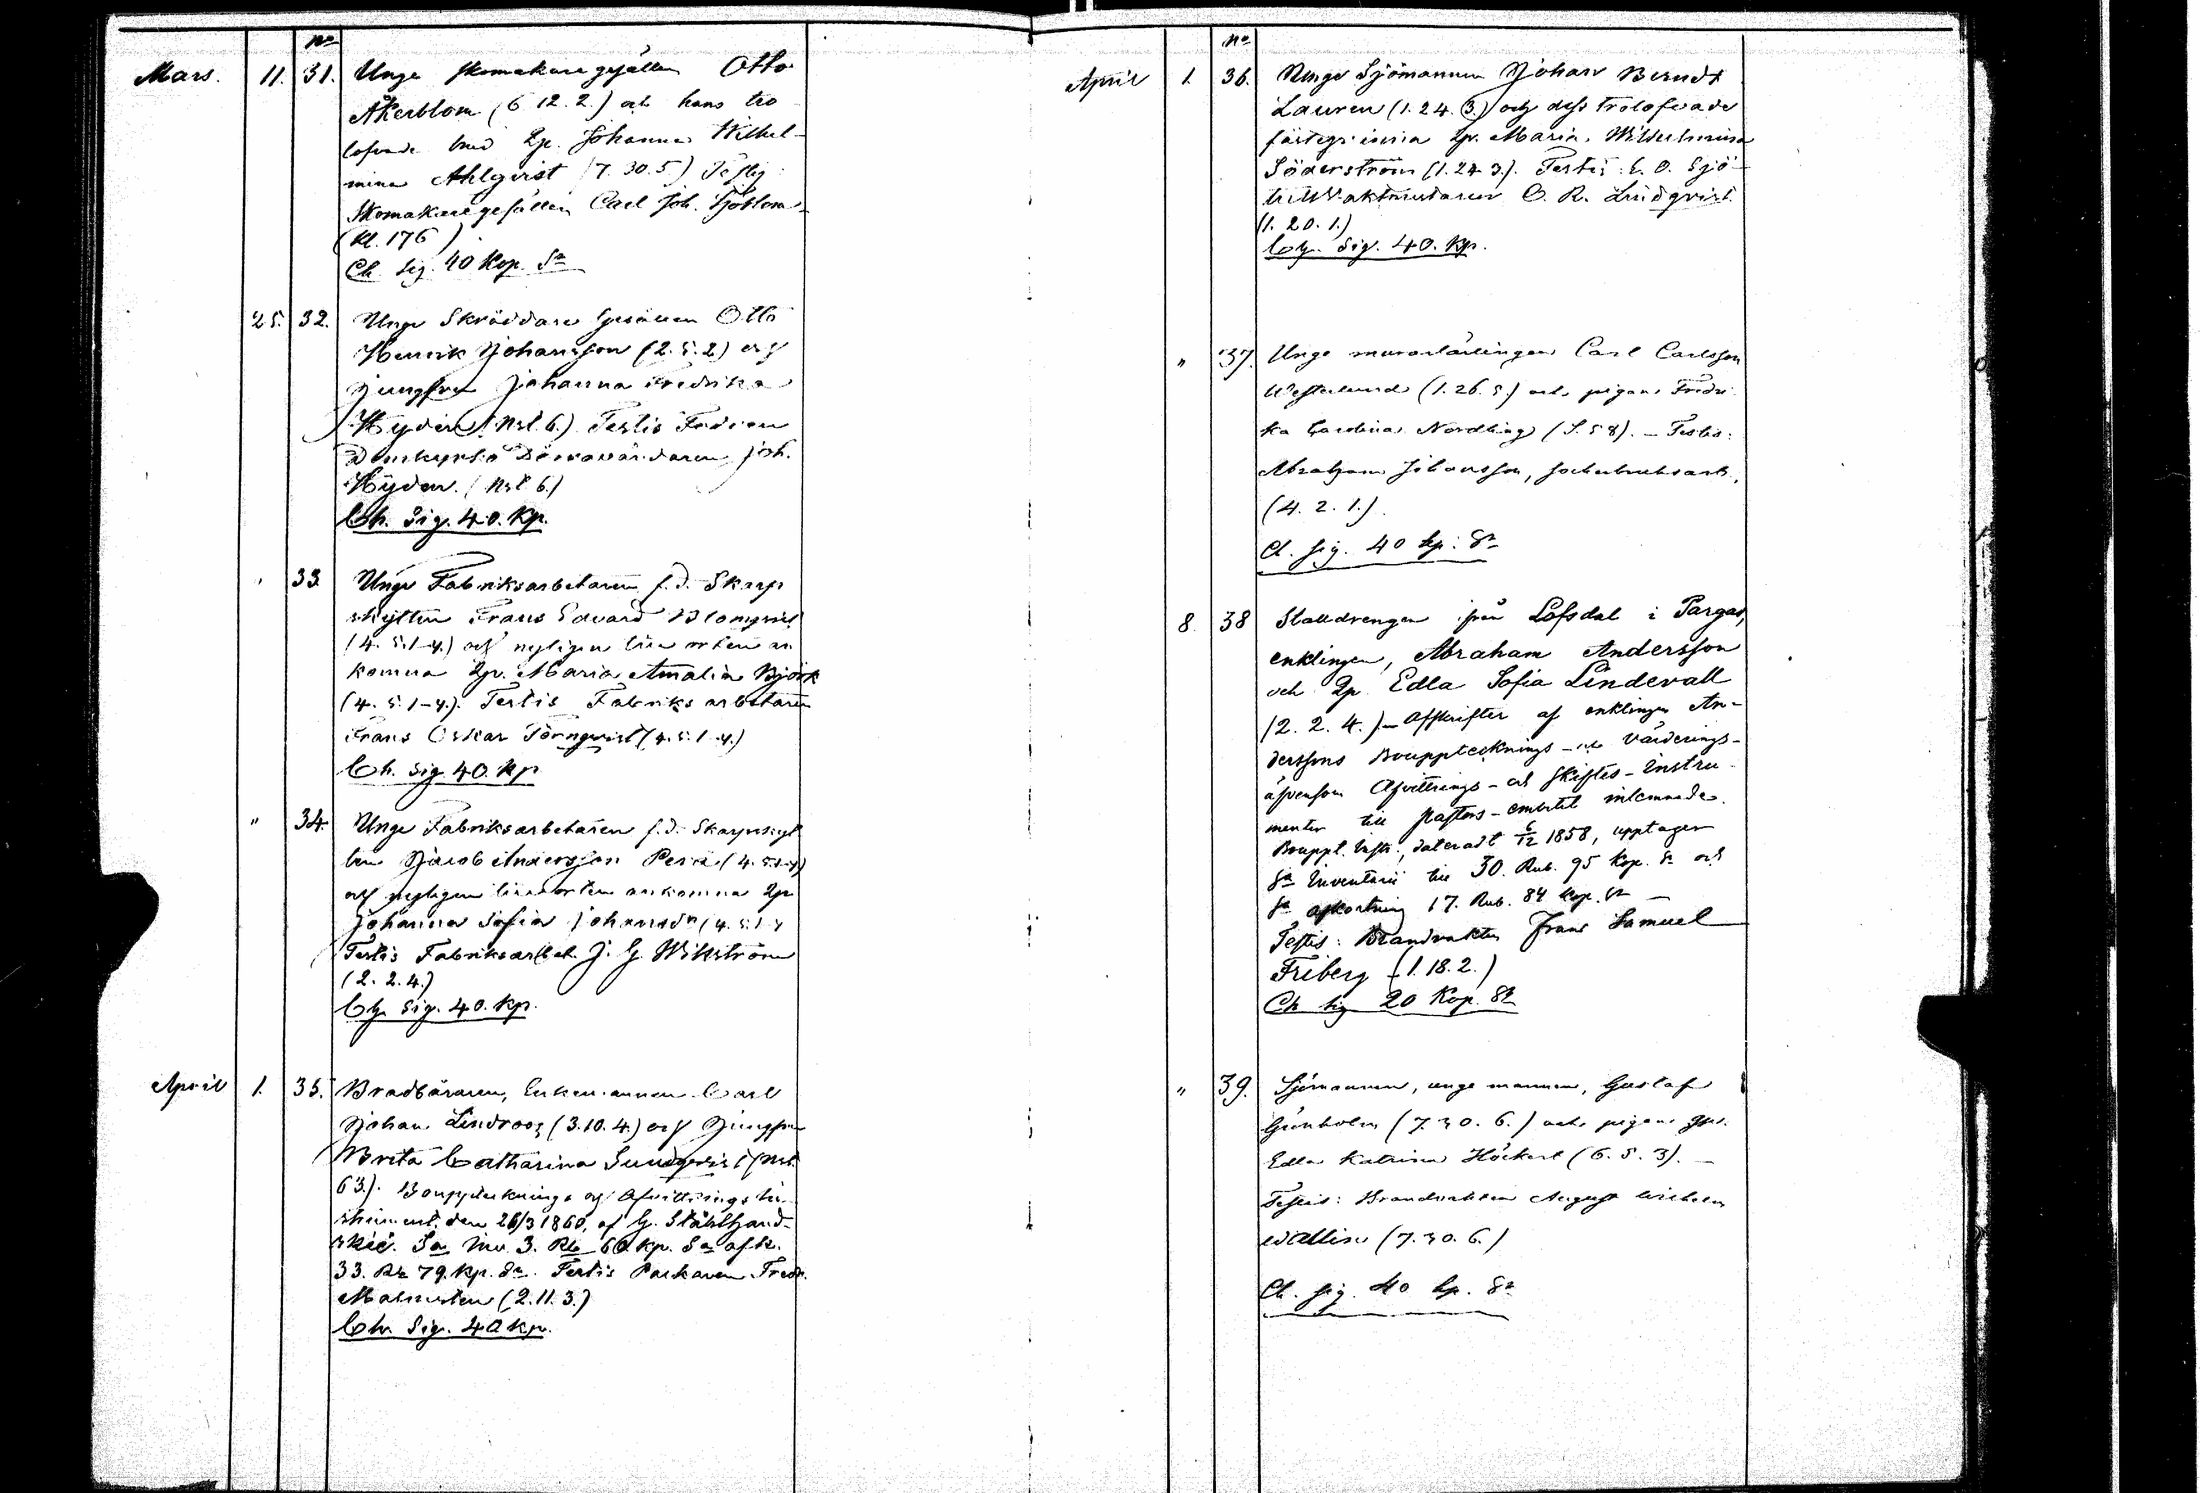 No
Mars. 11. 31. Unge skomakaregesällen Otto
Åkerblom (6 12. 2.) och hans tro
lofvade brud Pig. Johanna Wilhel-
mina Ahlqvist (7. 30. 5) Testis:
Skomakaregesällen Carl Joh. Sjöblom
(Kl. 176).
Ch. sig. 40 Kop. Sr
25. 32. Unge Skräddare Gesällen Otto
Henrik Johansson (2. 5. 2) och
Jungfrun Johanna Fredrika
Hydén (Nsl. 6.) Testis Fadren
Domkyrko Dörrvärdaren Joh.
Hydén. (Nsl 6.)
Ch. Sig. 40. Kp.
33. Unge Fabriksarbetaren f.d. Skarp
skytten Frans Edvard Blomqvist
(4. 5. 1-4.) och nyligen till orten an
komna Pig. Maria Amalia Björk
(4. 5. 1-4.). Testis Fabriksarbetaren
Frans Oskar Törnqvist (4. 5. 1-4.)
Ch. Sig. 40. Kp
" 34. Unge Fabriksarbetaren f.d. Skarpskyt
ten Jacob Andersson Perä (4. 5. 1-4)
och nyligen till orten ankomna Pig
Johanna Sofia Johansdr (4. 5. 1-4
Testis Fabriksarbet. J. G. Wikström
(2. 2. 4.)
Ch. Sig. 40. Kp.
April 1. 35. Bradbäraren, Enkemannen Carl
Johan Lindroos (3. 10. 4.) och Jungfrun
Brita Catharina Sundqvist (Nsl.
63.). Bouppteknings och Afvittrings In-
strument den 26/3 1860, af G. Stålhand-
ske. Sa Inv. 3. Rb 60. Kp. Sa afk.
33. Rb 79. Kp. Sr. Testis Packaren Fredr.
Malmsten (2. 11. 3.)
Ch. Sig. 40 kp.
No
April 1. 36. Unge Sjömannen Johan Berndt
Lauren (1. 24. 3.) och dess trolofvade
fästeqvinna Pig. Maria Wilhelmina
Söderström (1. 24 3.). Testis: E. O. Sjö-
tullvaktmästaren C. R. Lindqvist.
(1. 20. 1.)
Ch. Sig. 40. Kp.
" 37. Unge murarlärlingen Carl Carlsson
Westerlund (1. 26. 5.) och pigan Fredri
ka Carolina Nordling (S. 58). - Testis:
Abraham Johansson, sockerbruksarb.,
(4. 2. 1.).
Ch. sig. 40 kp. Sr
8. 38 Stalldrengen från Lofsdal i Pargas,
enklingen, Abraham Andersson
och Pig Edla Sofia Lindevall
(2. 2. 4.) - Afskrifter af enklingen An-
derssons Bouppteknings- och Värderings-
äfvensom Afvittrings- och Skiftes-Instru-
menter till Pastors-embetet inlemnade.
Bouppt. Instr., dateradt 6/12 1858, upptager
Sa Inventarii till 30. Rub. 95 Kop. Sr och
Sa afkortning 17. Rub. 84 Kop. Sr -
Testis: Brandvakten Frans Samuel
Friberg (1. 18. 2.)
Ch sig 20 Kop. Sr
" 39. Sjömannen, unge mannen, Gustaf
Grönholm (7. 30. 6.) och pigan Jgfr.
Edla Katrina Höckert (6. 5. 3). -
Testis: Brandvakten August Wilhelm
Wallin (7. 30. 6.)
Ch. sig. 40 kp. Sr